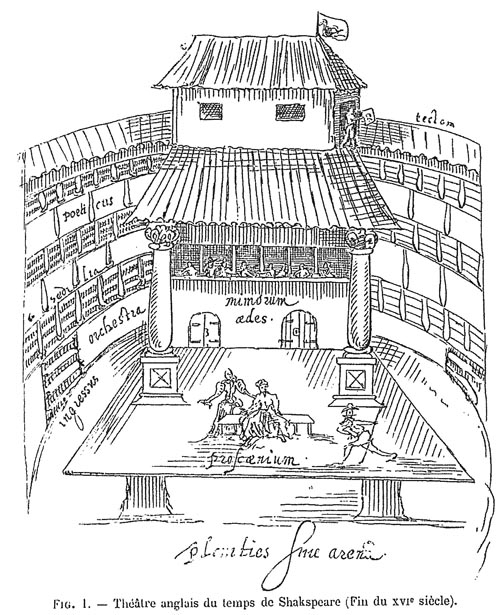 tectum
porticus
sedilia
orchestra
mimorum
ædes.
ingressus
proscænium.
planities sive arena.
FIG. 1. — Théâtre anglais du temps de Shakspeare (Fin du XVIᵉ siècle).